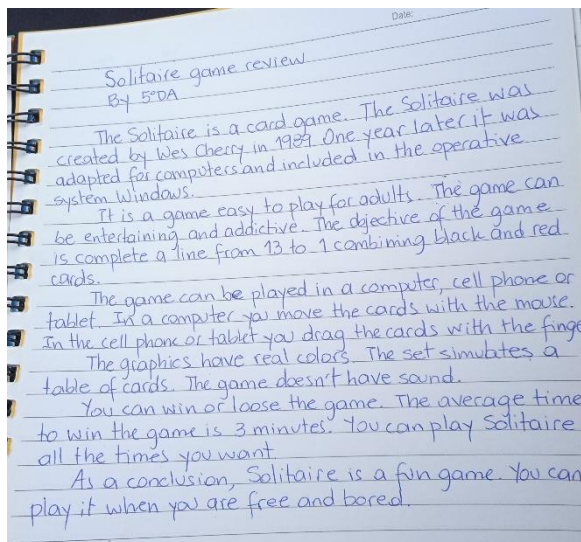 Date:
Solitaire game review
By 5°DA
The Solitaire is a card game. The Solitaire was
created by Wes Cherry in 1989. One year later it was
adapted for computers and included in the operative
system Windows.
It is a game easy to play for adults. The game can
be entertaining and addictive. The objective of the game
is complete a line from 13 to 1 combining black and red
cards.
The game can be played in a computer, cell phone or
tablet. In a computer you move the cards with the mouse.
In the cell phone or tablet you drag the cards with the finge
The graphics have real colors. The set simulates a
table of cards. The game doesn't have sound.
You can win or loose the game. The average time
to win the game is 3 minutes. You can play Solitaire
all the times you want.
As a conclusion, Solitaire is a fun game. You can
play it when you are free and bored.